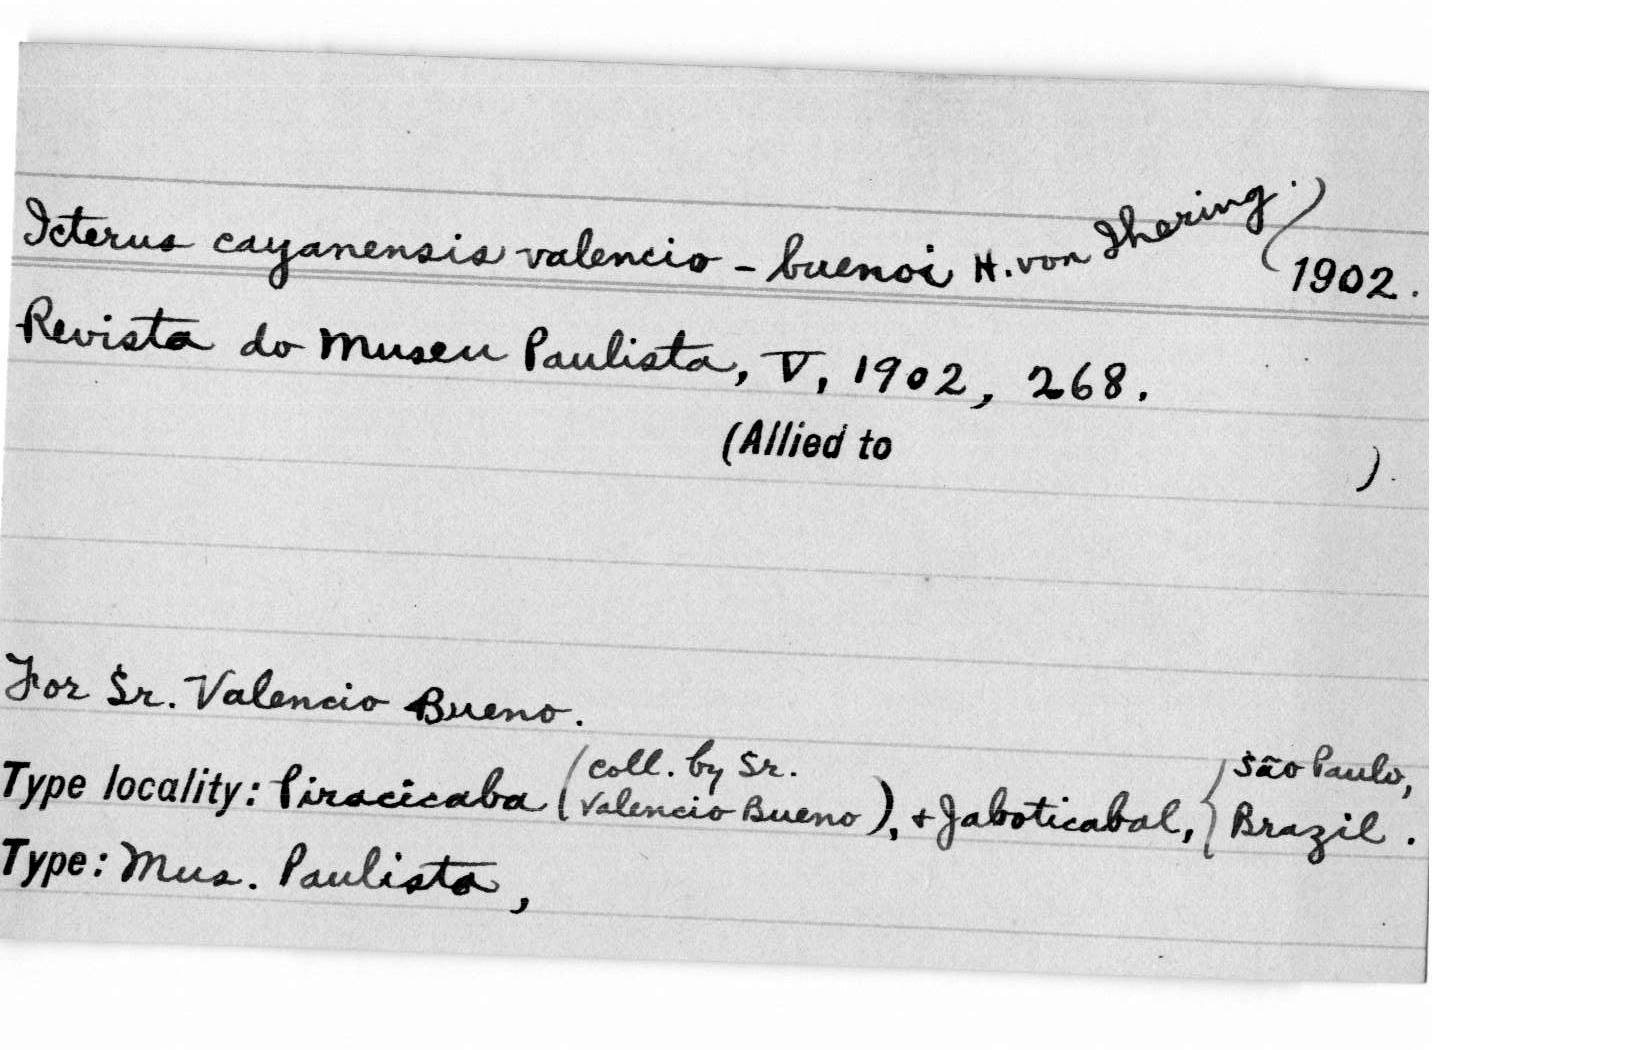 Icterus cayanensis valencio-buenoi H. von Ihering.) 1902.
Revista do Museu Paulista, V, 1902, 268.
(Allied to ).
For Sr. Valencio Bueno.
Type locality: Piracicaba (coll. by Sr. Valencio Bueno), + Jaboticabal, {São Paulo, Brazil.
Type: Mus. Paulista,